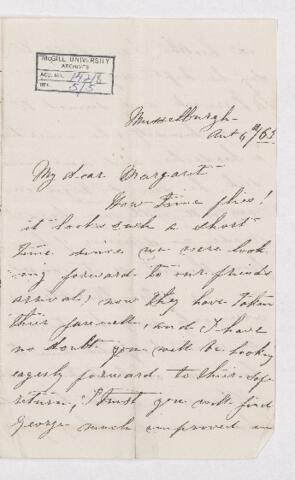 McGILL UNIVERSITY
ARCHIVES
ACC. NO. 1421/8
REF. 5/5
Musselburgh
6th/63
My dear Margaret
How time flies!
it looks such a short
time since we were look
ing forward to our friends
arrival, now they have taken
their farewell, and I have
no doubt you will be looking
eagerly forward to their safe
return, I trust you will find
George much improved in